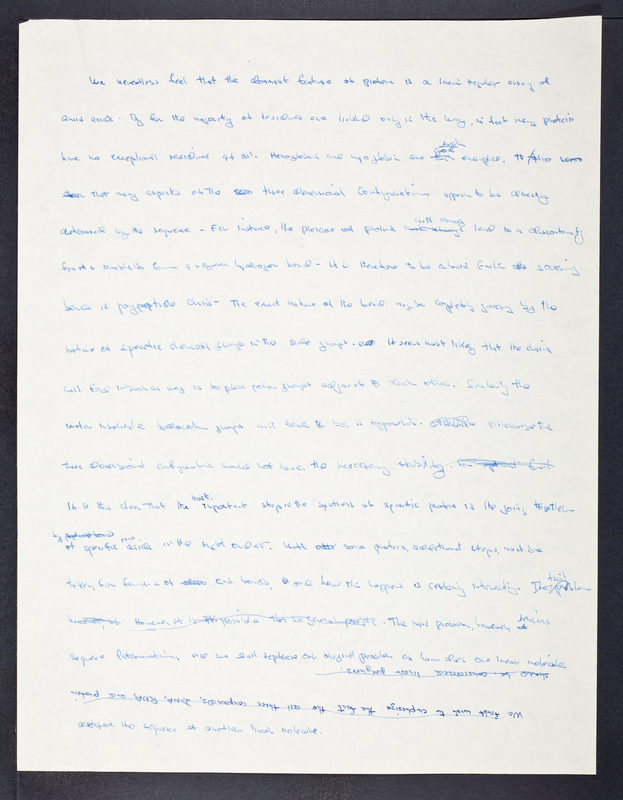 We nevertheless feel that the dominant feature of proteins is a linear regular array of
amino acids. By far the majority of residues are linked only in this way, in fact many proteins
have no exceptional residues at all. Hemoglobin and myoglobin are good examples. It also
that many aspects of the three dimensional configuration appear to be directly
determined by the sequence - For instance, the presence of proline will always lead to a discontinuity
for it is unable to form a regular hydrogen bond - It is therefore to be a basic factor causing
bends in polypeptide chains - The exact nature of the bend may be completely given by the
nature of specific chemical groups in the side groups. It seems most likely that the chain
will fold in such a way as to place polar groups adjacent to each other. Similarly the
water insoluble hydrocarbon groups will tend to be in opposition. Otherwise the
three dimensional configuration would not have the necessary stability.
It is thus clear that the most important step in the synthesis of specific protein is the joining together
of specific amino acids in the right order. With some proteins, additional steps, must be
taken, for formation of bonds, & how this happens is certainly interesting. The problem
However it is possible that no general . The main problem, however, remains
sequence determination, and we shall rephrase our original problem as how does one linear molecule
should be considered linear polymers.
We first wish to emphasize the fact the all three compounds, DNA, RNA, and protein
determine the sequence of another linear molecule.